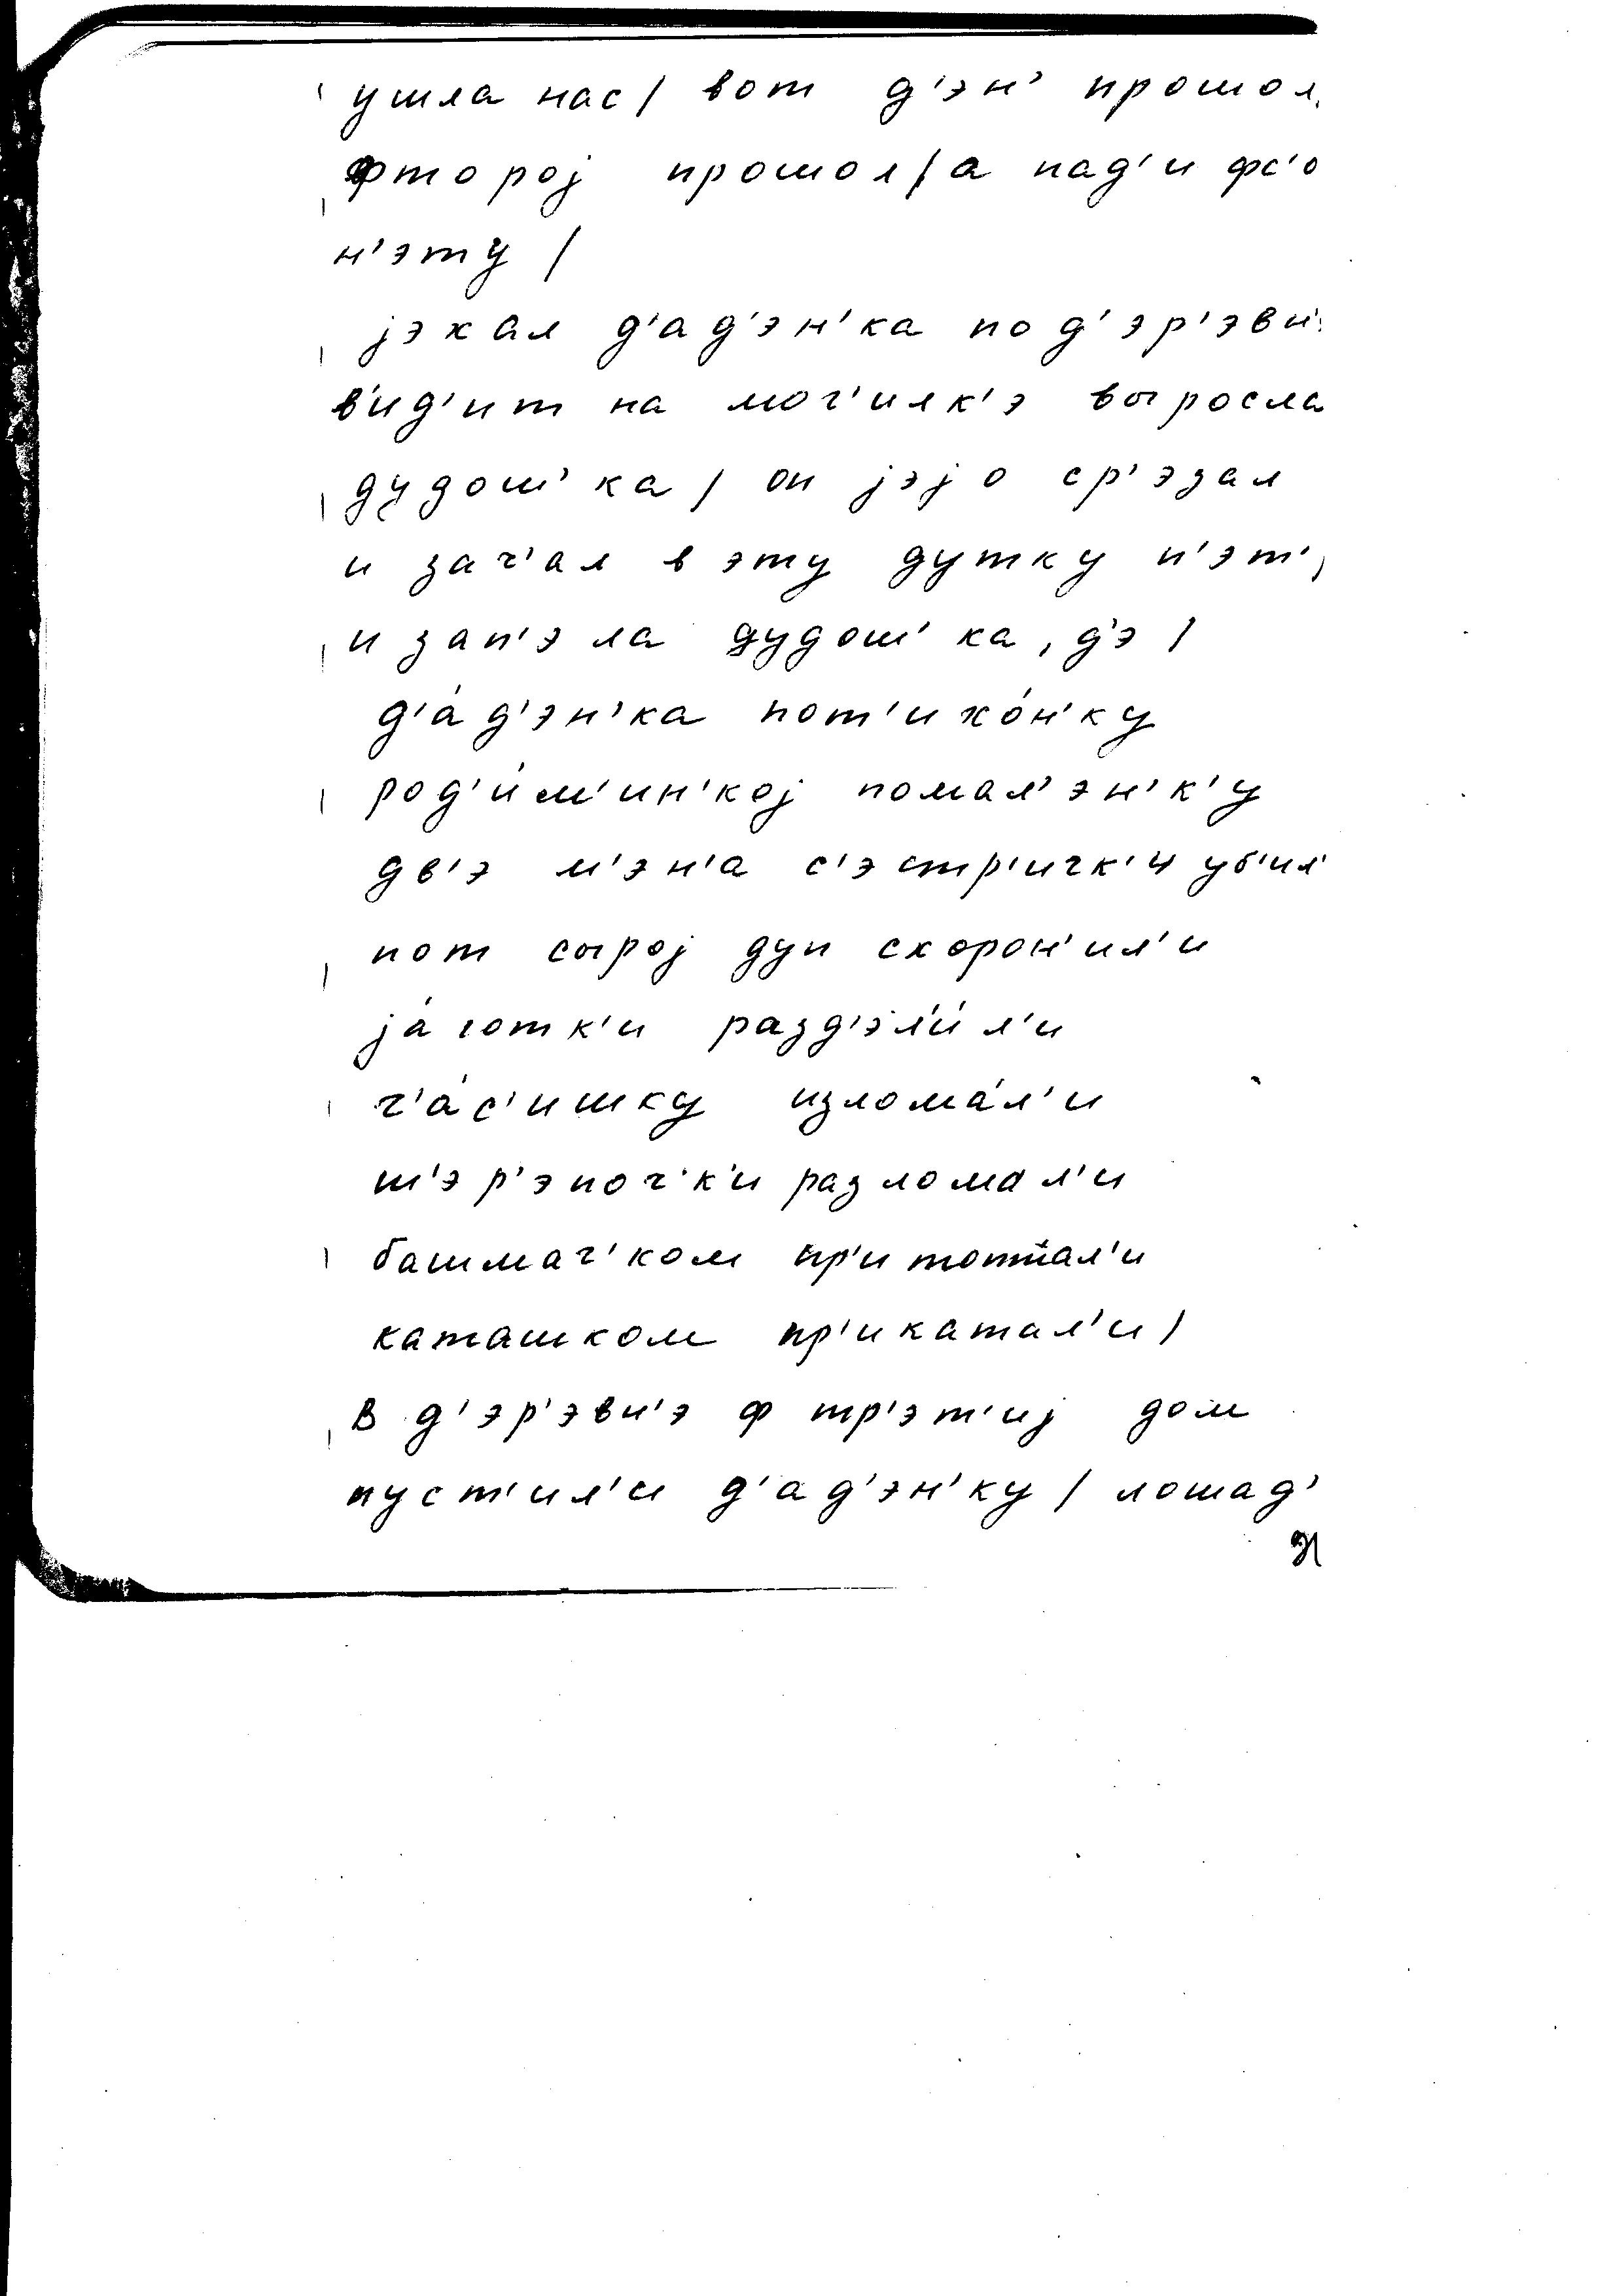 ушла нас / вот д'эн' прошол
фторој прошол / а над'и фс'о
н'эту /
јэхал д'ад'эн'ка по д'эр'эвн'
в'ид'ит на мог'илк'э выросла
дудош'ка / он јэјо ср'эзал
и зач'ал в эту дутку п'эт',
и зап'эла дудош'ка, д'э /
д'а́д'эн'ка пот'ихо́н'ку
род'и́м'ин'кој помал'эн'к'у
дв'э м'эн'а с'эстр'ичк'и уб'ил'
пот сырој дуп схорон'ил'и
ја́готк'и разд'эл'и́л'и
ч'а́с'ишку излома́л'и
ш'эр'эпоч'к'и разломал'и
башмач'ком пр'итоптал'и
каташком пр'икатал'и /
в д'эр'эвн'э ф тр'эт'иј дом
пуст'ил'и д'ад'эн'ку / лошад'